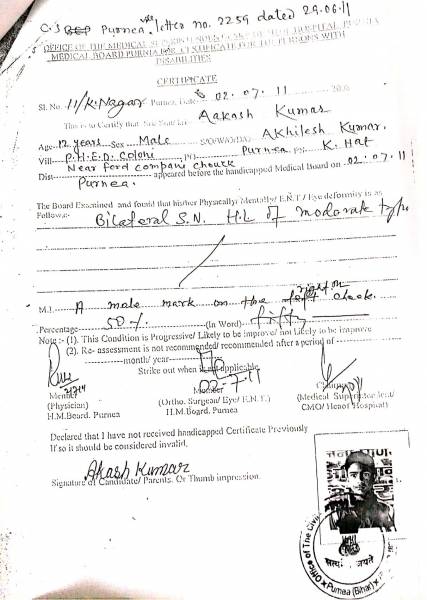 C.S Purnea vide letter no. 2259 dated 29.06.11
OFFICE OF THE MEDICAL HOSPITAL, PURNIA
MEDICAL BOARD PURNIA FOR CERTIFICATE FOR THE PERSONS WITH
DISABILITIES
CERTIFICATE
Sl. No. 11/K.Nagar Purnea, Date 02.07.11
This is to Certify that Aakash Kumar
Age 12 years Sex Male S/O/W/O/D/O Akhilesh Kumar.
Vill P.H.E.D. Coloni P.O Purnea PS K. Hat
Near ford company chowck
Dist Purnea. appeared before the handicapped Medical Board on 02.07.11
The Board Examined and found that his/her Physically/ Mentally/ E.N.T./ Eye deformity is as
Follows:- Bilateral S.N. H.L of modarate type
M.I. A male mark on the right cheack.
Percentage 50% (In Word) fifty
Note :- (1). This Condition is Progressive/ Likely to be improve/ not Likely to be improve
(2). Re- assessment is not recommended/ recommended after a period of
month/ year
Strike out when is not applicable
02-7-11
Member
(Physician)
H.M.Board. Purnea
Member
(Ortho. Surgeon/ Eye/ E.N.T.)
H.M.Board. Purnea
(Medical
CMO/ Hospital)
Declared that I have not received handicapped Certificate Previously
If so it should be considered invalid.
Akash Kumar
Signature of Candidate/ Parents. Or Thumb impression.
Office of The Civil
सत्यमेव जयते
Purnea (Bihar)